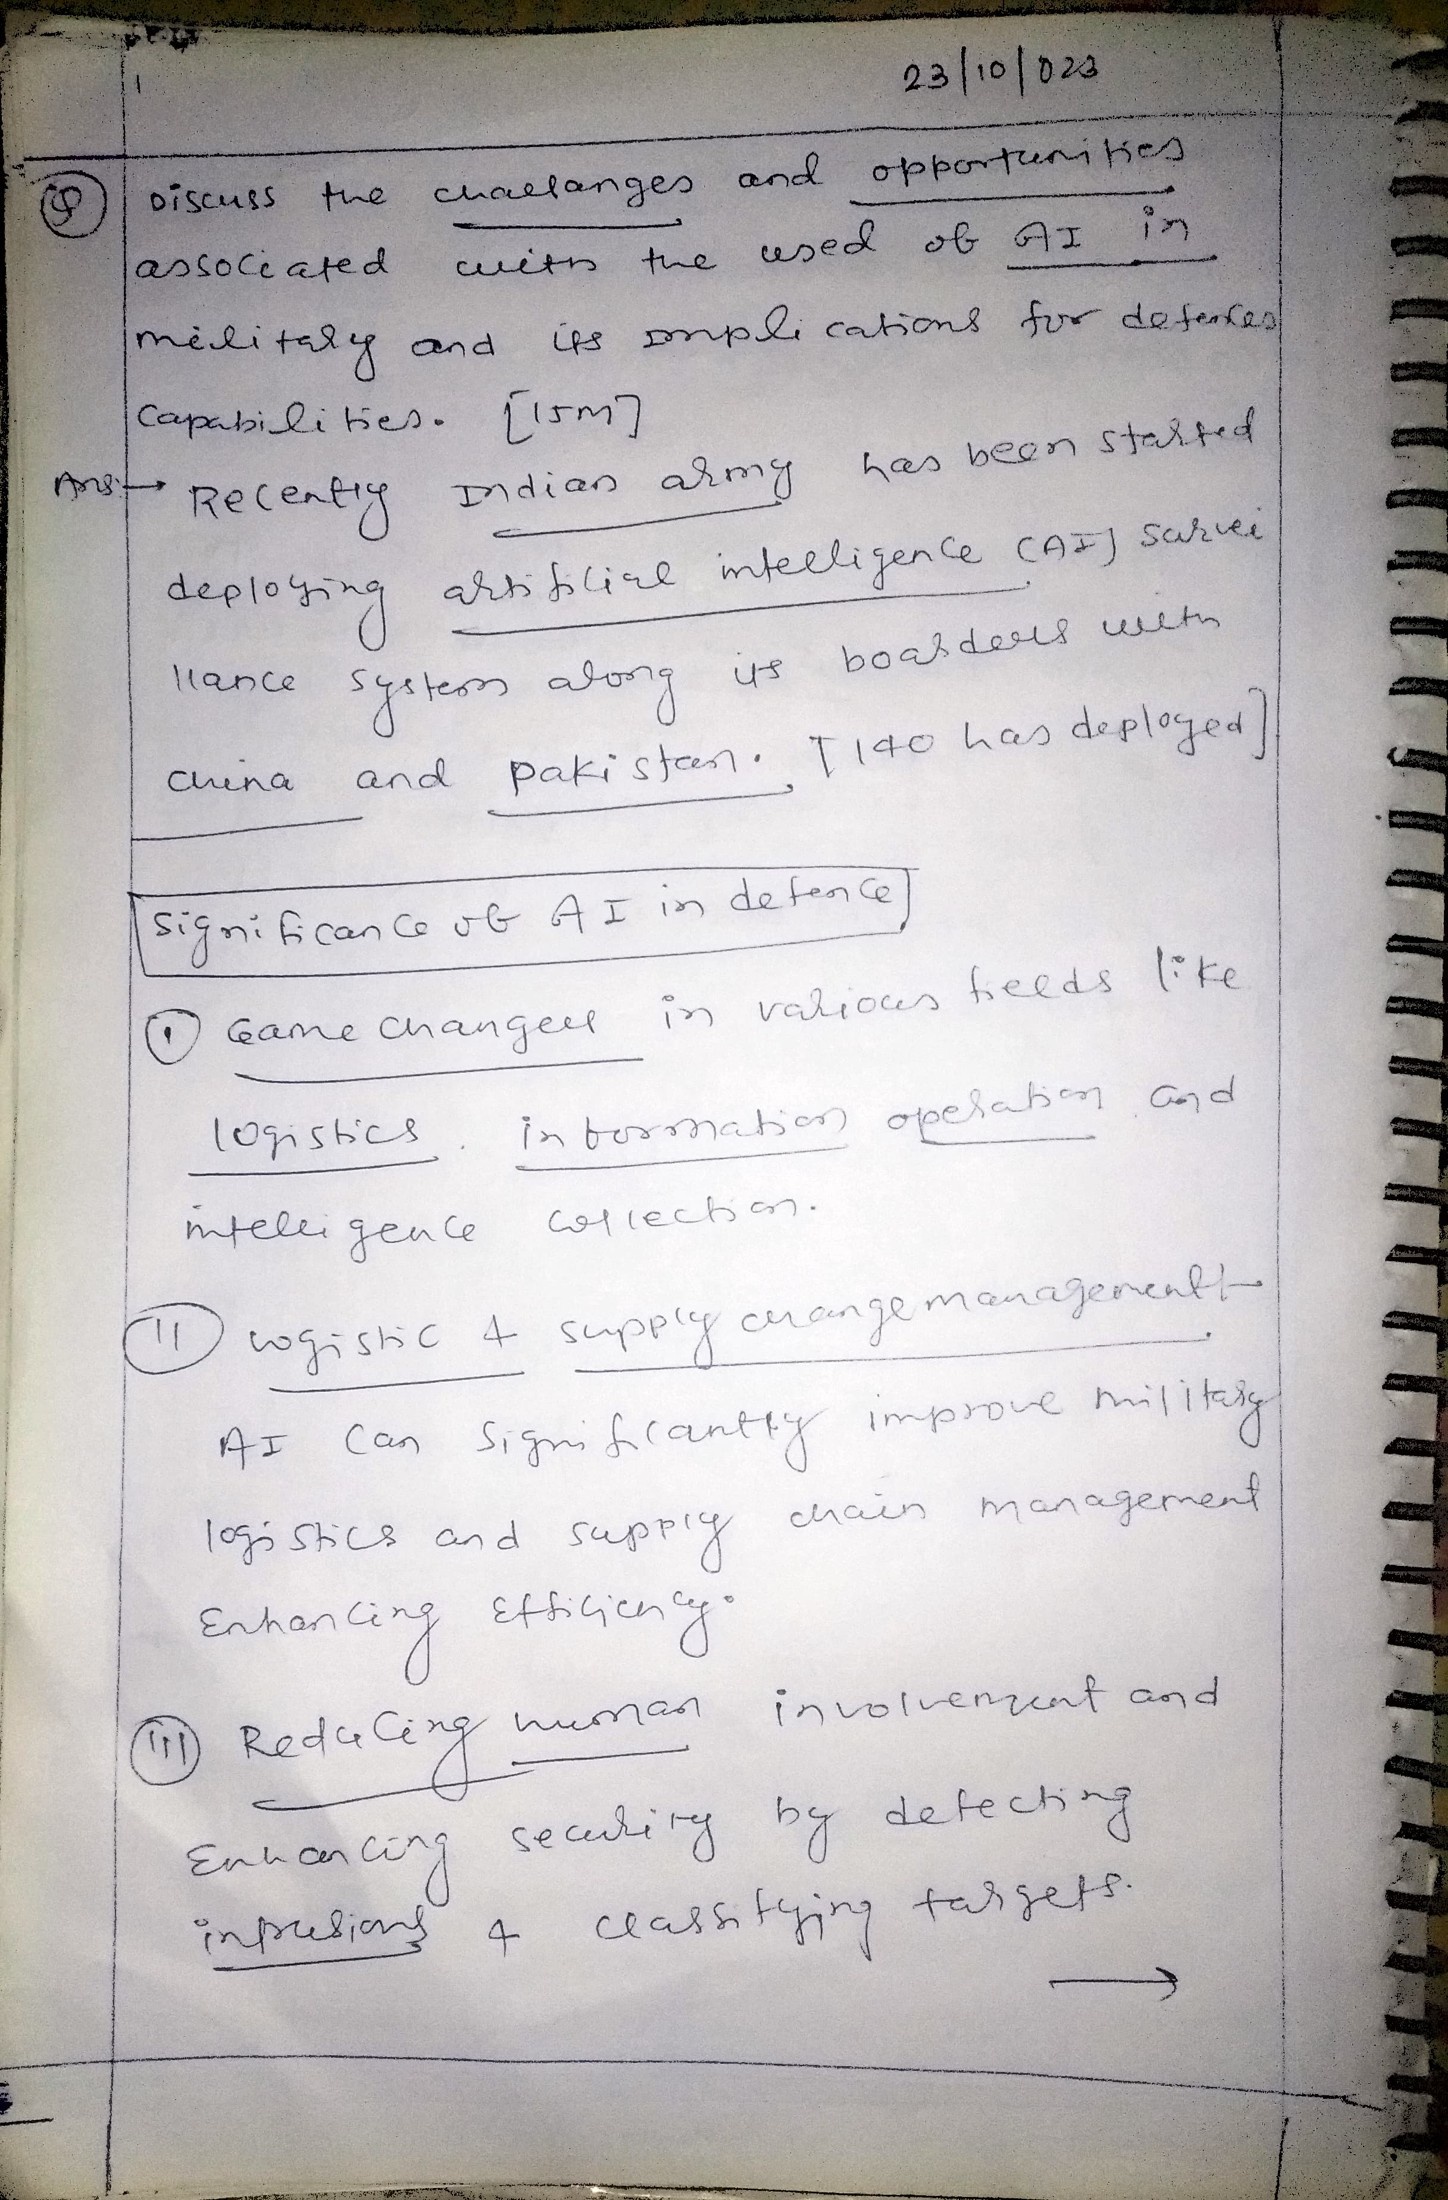 23/10/023
Q Discuss the challanges and opportunities
associated with the used of AI in
military and its implications for defences
capabilities. [15M]
Ans:→ Recently Indian army has been started
deploying artificial intelligence (AI) survei
llance system along its boarders with
China and Pakistan. [140 has deployed]
Significance of AI in defence
(i) Game changer in various fields like
logistics, information operation and
intelligence collection.
(ii) Logistic & supply change management:-
AI can significantly improve military
logistics and supply chain management
Enhancing Efficiency.
(iii) Reducing human involvement and
Enhancing security by detecting
intrusions & classifying targets.
→